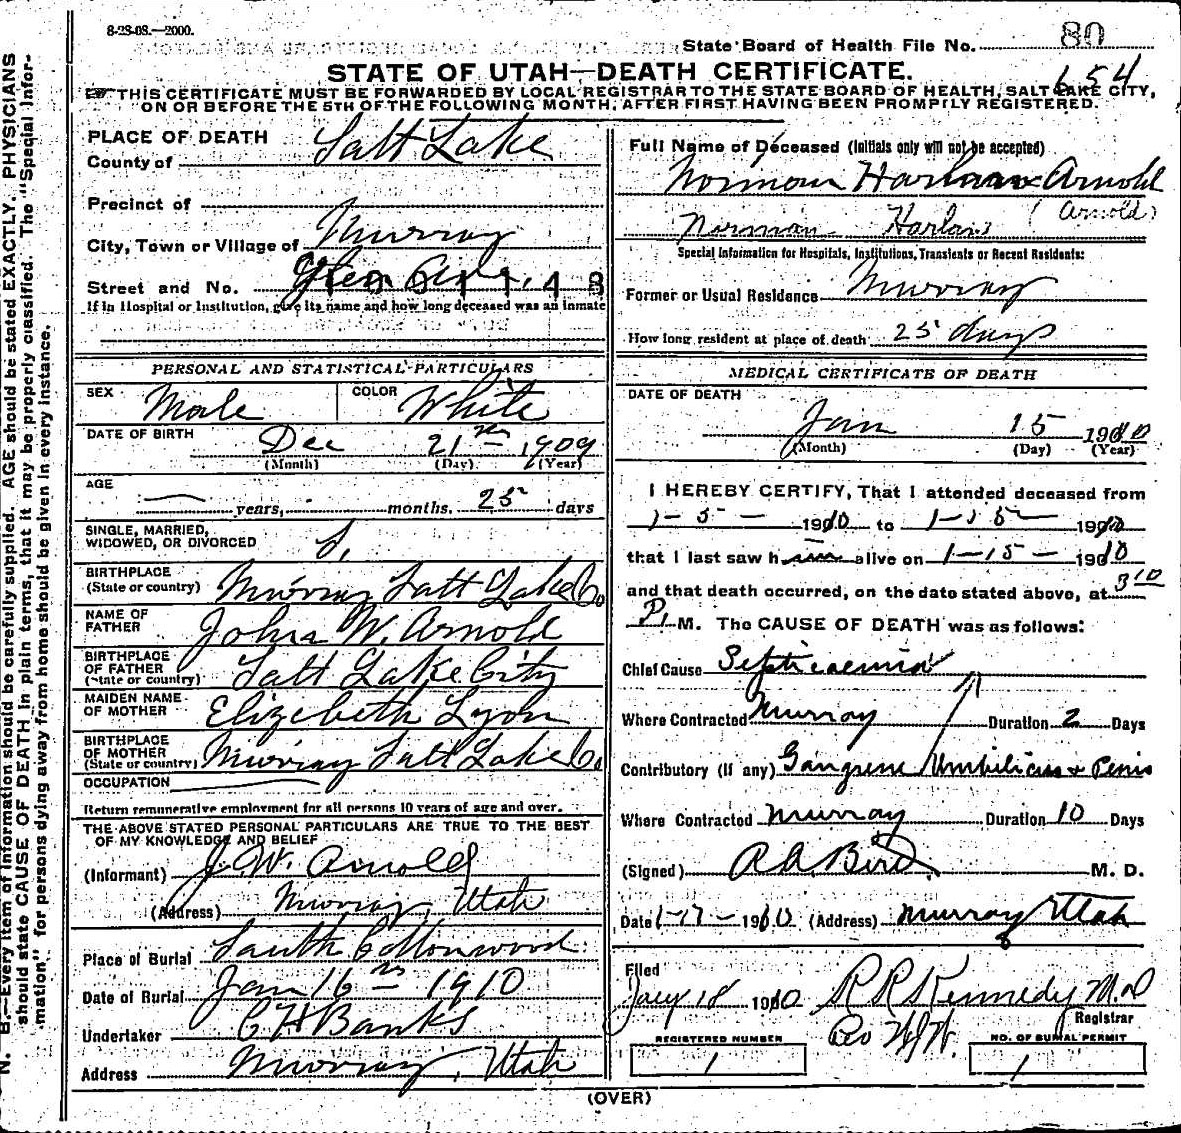 8-28-08.—2000.
State Board of Health File No. 80
654
STATE OF UTAH—DEATH CERTIFICATE.
THIS CERTIFICATE MUST BE FORWARDED BY LOCAL REGISTRAR TO THE STATE BOARD OF HEALTH, SALT LAKE CITY,
ON OR BEFORE THE 5TH OF THE FOLLOWING MONTH, AFTER FIRST HAVING BEEN PROMPTLY REGISTERED.
PLACE OF DEATH
County of Salt Lake
Precinct of
City, Town or Village of Murray
Street and No. Glen Ave.
If in Hospital or Institution, give its name and how long deceased was an inmate
PERSONAL AND STATISTICAL PARTICULARS
SEX Male COLOR White
DATE OF BIRTH Dec 21st 1909
(Month) (Day) (Year)
AGE
— years, months, 25 days
SINGLE, MARRIED,
WIDOWED, OR DIVORCED S.
BIRTHPLACE
(State or country) Murray Salt Lake Co.
NAME OF
FATHER John W. Arnold
BIRTHPLACE
OF FATHER
(State or country) Salt Lake City
MAIDEN NAME
OF MOTHER Elizebeth Lyon
BIRTHPLACE
OF MOTHER
(State or country) Murray Salt Lake Co.
OCCUPATION
Return remunerative employment for all persons 10 years of age and over.
THE ABOVE STATED PERSONAL PARTICULARS ARE TRUE TO THE BEST
OF MY KNOWLEDGE AND BELIEF
(Informant) J. W. Arnold
(Address) Murray, Utah
Place of Burial South Cottonwood
Date of Burial Jan 16th 1910
Undertaker C H Banks
Address Murray, Utah
Full Name of Deceased (Initials only will not be accepted)
Norman Harlan Arnold
Norman Harlan (Arnold)
Special Information for Hospitals, Institutions, Transients or Recent Residents:
Former or Usual Residence Murray
How long resident at place of death 25 days
MEDICAL CERTIFICATE OF DEATH
DATE OF DEATH
Jan 15 1910
(Month) (Day) (Year)
I HEREBY CERTIFY, That I attended deceased from
1-5- 1910 to 1-15- 1910
that I last saw him alive on 1-15- 1910
and that death occurred, on the date stated above, at 3 10
P. M. The CAUSE OF DEATH was as follows:
Chief Cause Septicaemia
Where Contracted Murray Duration 2 Days
Contributory (If any) Gangrene Umbilicus + Penis
Where Contracted Murray Duration 10 Days
(Signed) R. A. Bird M. D.
Date 1-17- 1910 (Address) Murray Utah
Filed
Jany 18 1910 R R Kennedy M.D
Registrar
REGISTERED NUMBER
1
NO. OF BURIAL PERMIT
1
(OVER)
N. B.—Every item of information should be carefully supplied. AGE should be stated EXACTLY. PHYSICIANS
should state CAUSE OF DEATH in plain terms, that it may be properly classified. The "Special Infor-
mation" for persons dying away from home should be given in every instance.